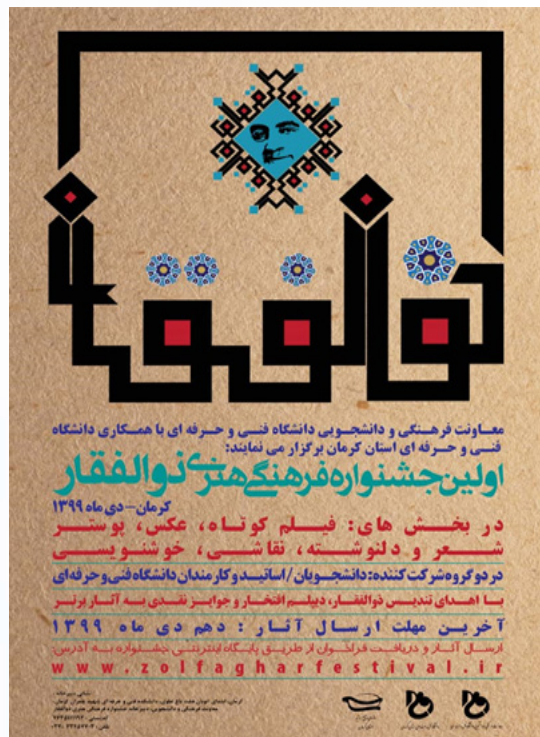 ذوالفقار
معاونت فرهنگی و دانشجویی دانشگاه فنی و حرفه ای با همکاری دانشگاه
فنی و حرفه ای استان کرمان برگزار می نمایند:
اولین جشنواره فرهنگی هنری ذوالفقار
کرمان - دی ماه ۱۳۹۹
در بخش های: فیلم کوتاه، عکس، پوستر
شعر و دلنوشته، نقاشی، خوشنویسی
در دو گروه شرکت کننده: دانشجویان / اساتید و کارمندان دانشگاه فنی و حرفه ای
با اهدای تندیس ذوالفقار، دیپلم افتخار و جوایز نقدی به آثار برتر
آخرین مهلت ارسال آثار: دهم دی ماه ۱۳۹۹
ارسال آثار و دریافت فراخوان از طریق پایگاه اینترنتی جشنواره به آدرس:
www.zolfagharfestival.ir
نشانی دبیرخانه: